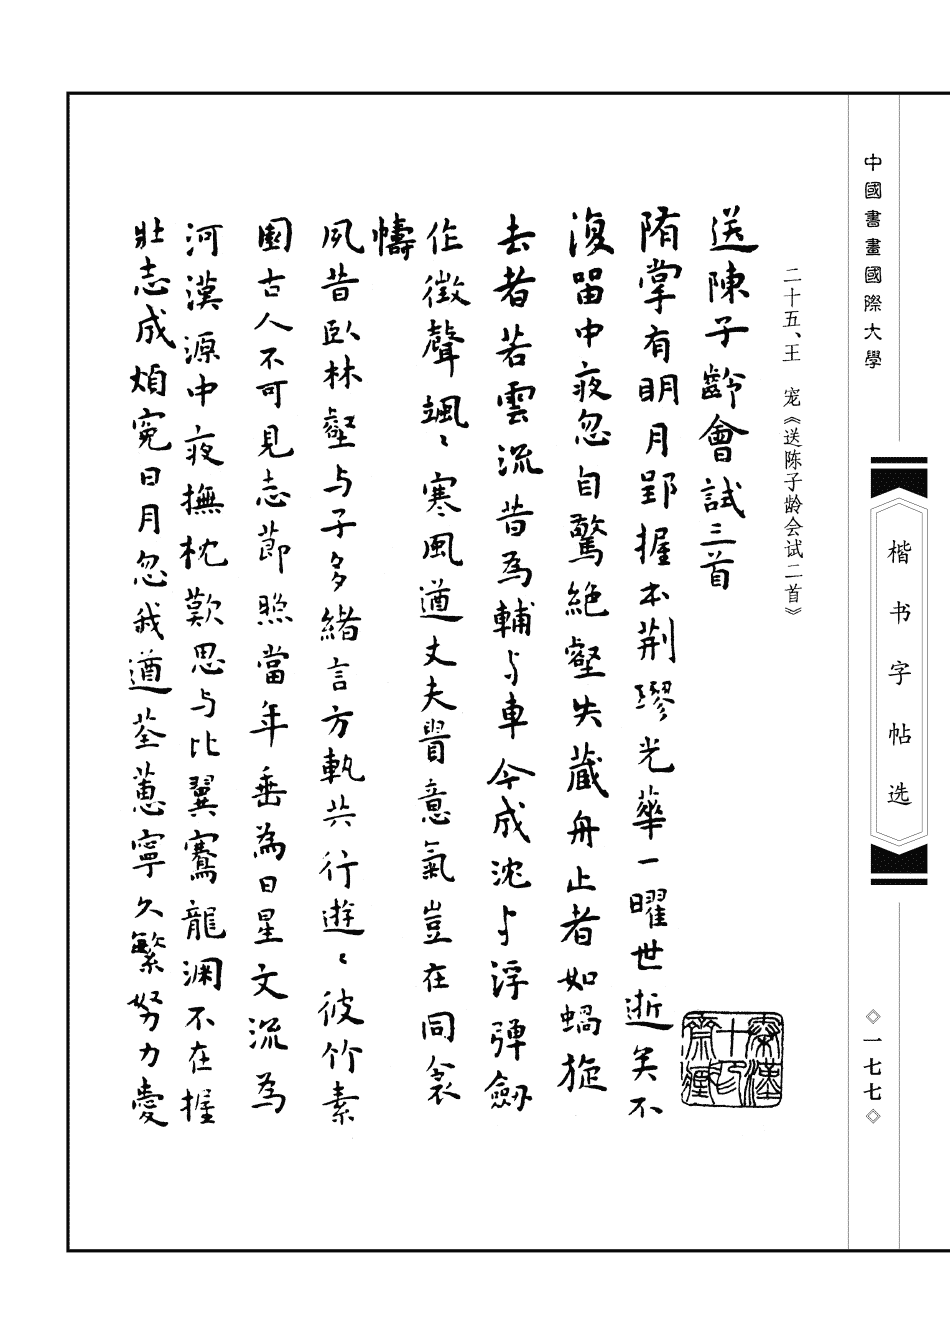 中國書畫國際大學
楷书字帖选
◇一七七◇
二十五、王　宠《送陈子龄会试二首》
送陳子齡會試三首
隋掌有明月郢握本荆璆光華一曜世逝矣不
復留中夜忽自驚絕壑失藏舟止者如蝸旋
去者若雲流昔為輔与車今成沈与浮彈劒
作徵聲颯〻寒風遒丈夫貴意氣豈在同衾
幬
夙昔臥林壑与子多緒言方軌共行遊〻彼竹素
園古人不可見志節照當年垂為日星文流為
河漢源中夜撫枕歎思与比翼騫龍淵不在握
壯志成煩冤日月忽我遒荃蕙寧久繁努力愛
秦漢十印齋